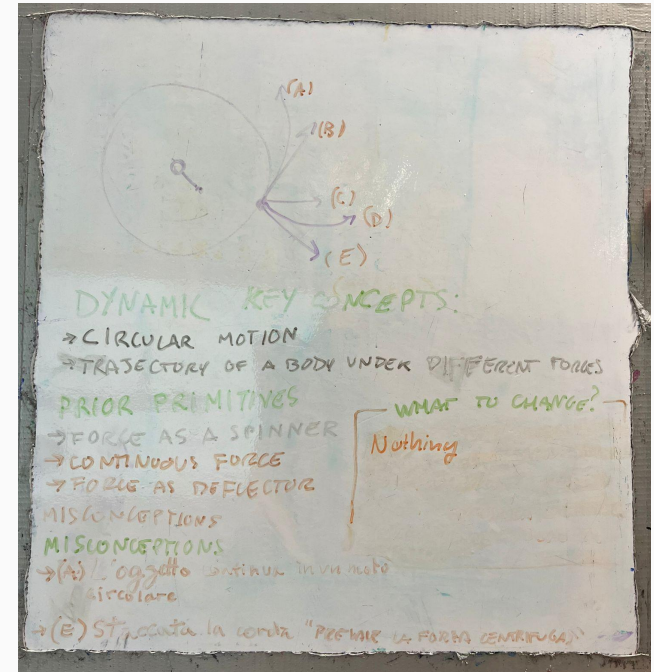 (A)
(B)
(C)
(D)
(E)
DYNAMIC KEY CONCEPTS:
→ CIRCULAR MOTION
→ TRAJECTORY OF A BODY UNDER DIFFERENT FORCES
PRIOR PRIMITIVES
→ FORCE AS A SPINNER
→ CONTINUOUS FORCE
→ FORCE AS DEFLECTOR
WHAT TO CHANGE?
Nothing
MISCONCEPTIONS
MISCONCEPTIONS
→ (A) L'oggetto continua in un moto
circolare
→ (E) la corda "PREVALE LA FORZA CENTRIFUGA"